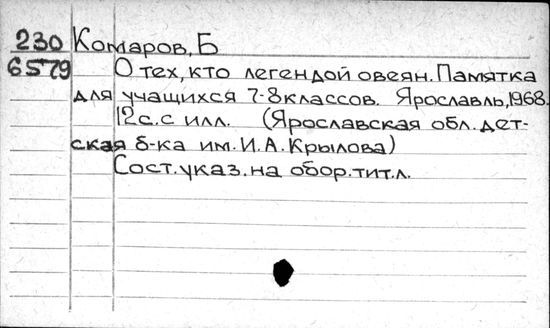 230 Комаров, Б
6579 О тех, кто легендой овеян. Памятка
для учащихся 7-8 классов. Ярославль, 1968.
12 с. с илл. (Ярославская обл. дет-
ская б-ка им. И. А. Крылова)
Сост. указ. на обор. тит. л.